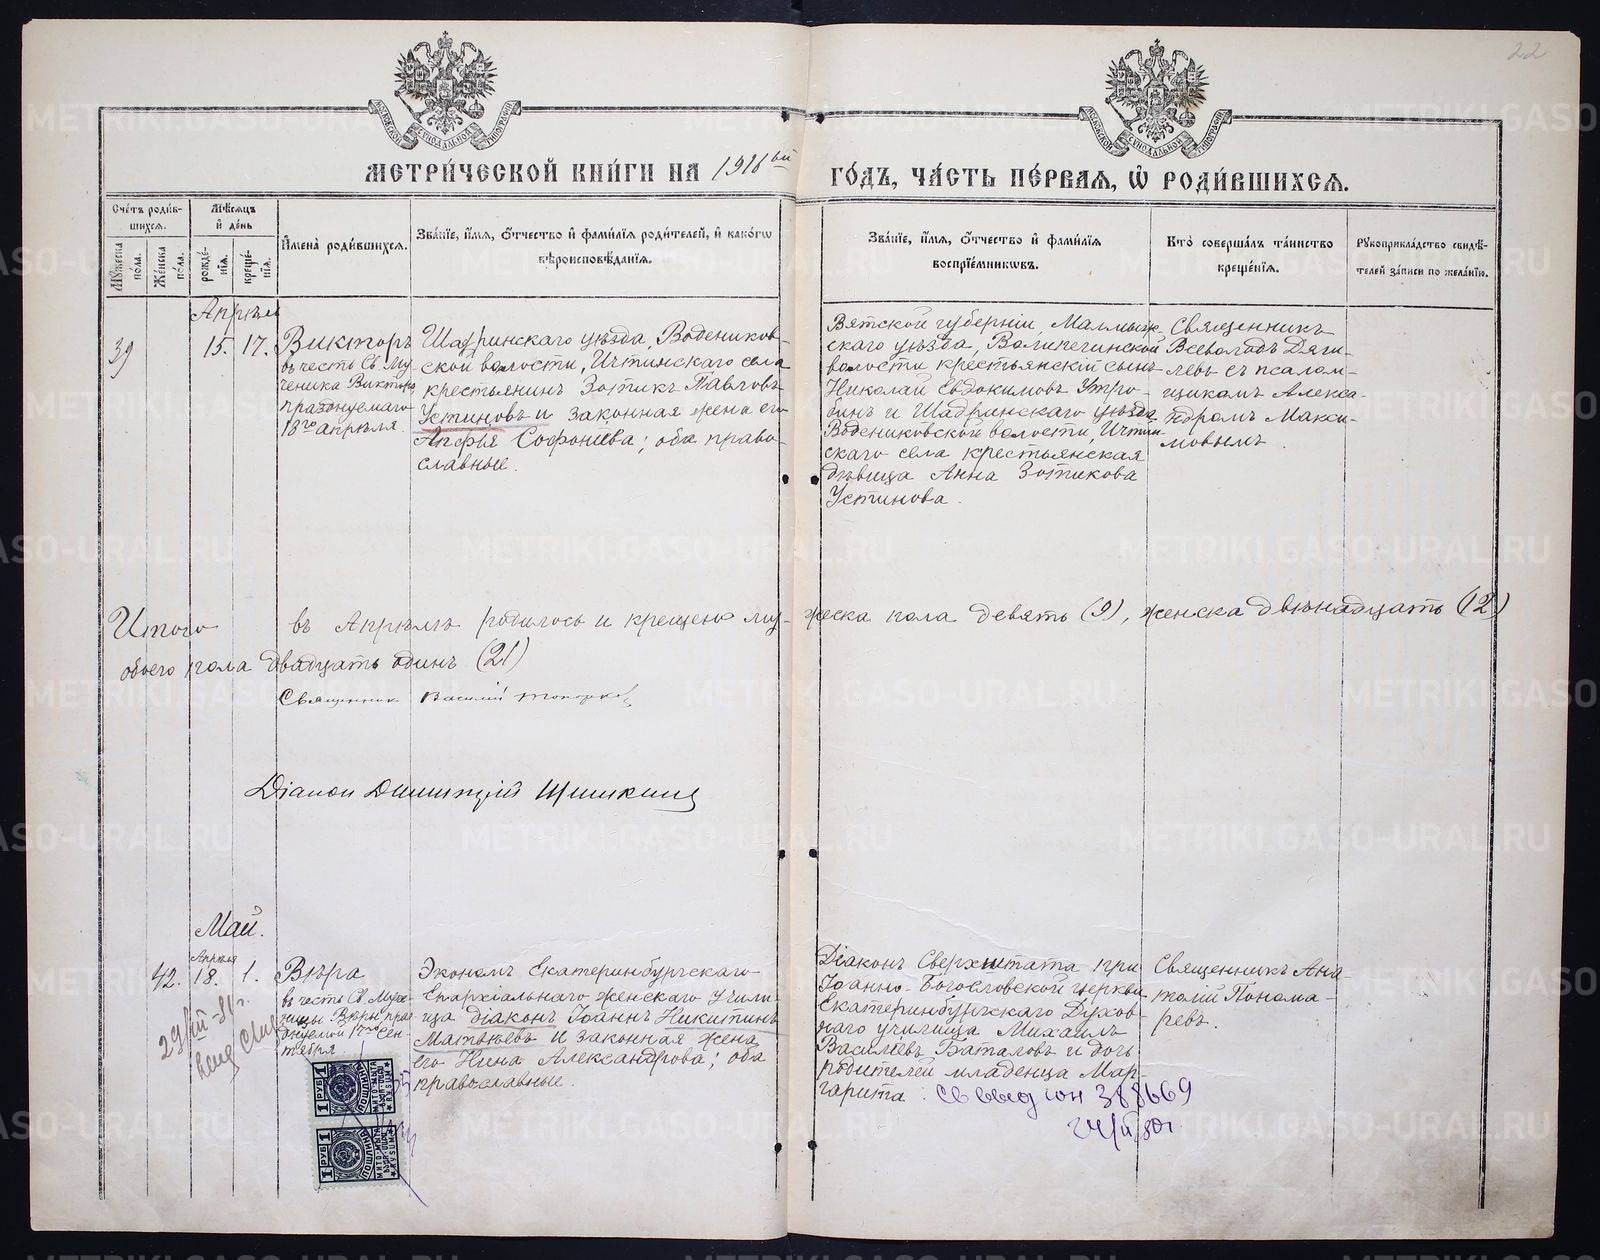 22
МЕТРИ́ЧЕСКОЙ КНИ́ГИ НА 1916ый ГО́ДЪ, ЧА́СТЬ ПЕ́РВАЯ, Ѽ РОДИ́ВШИХСЯ.
Сче́тъ роди́в-
шихся.
Му́жеска по́ла.
Же́нска по́ла.
Мѣ́сяцъ
и де́нь
рожде́-
нїя.
креще́-
нїя.
И̓мена̀ роди́вшихся.
Зва́нїе, и̓́мя, ѻ̓́тчество и̓ фами́лїя роди́телей, и̓ како́гѡ
вѣроисповѣ́данїя.
Зва́нїе, и̓́мя, ѻ̓́тчество и̓ фами́лїя
воспрїе́мникѡвъ.
Кто̀ соверша́лъ та́инство
креще́нїя.
Рꙋкоприкла́дство свидѣ́-
телей за́писи по жела́нїю.
Апрѣль
39
15. 17.
Викторъ
въ честь Св. Му-
ченика Виктора,
празднуемаго
18го апрѣля.
Шадринскаго уѣзда, Водеников-
ской волости, Ичтинскаго села
крестьянинъ Зотикъ Павловъ
Устиновъ и законная жена его
Апфья Софонiева; оба право-
славные.
Вятской губернiи, Малмыж-
скаго уѣзда,
волости крестьянскiй сынъ
Николай Евдокимовъ Утро-
бинъ и Шадринскаго уѣзда
Водениковской волости, Ичтин-
скаго села крестьянская
дѣвица Анна Зотикова
Устинова.
Священникъ
Всеволодъ Дяги-
левъ съ псалом-
щикомъ Алекса-
ндромъ Макси-
мовымъ.
Итого въ Апрѣлѣ родилось и крещено му-жеска пола девять (9), женска двѣнадцать (12)
обоего пола двадцать одинъ (21)
Священник Василiй Топорков
Дiакон Димитрiй Шишкинъ
Май.
42.
Апрѣля
18. 1.
Вѣра
въ честь Св. Муче-
ницы Вѣры праз-
днуемой 17го Сен-
тября
Экономъ Екатеринбургскаго
Епархiальнаго женскаго Учили-
ща дiаконъ Iоаннъ Никитинъ
Матвѣевъ и законная жена
его Нина Александрова; оба
православные.
Дiаконъ Сверхштата при
Iоанно-Богословской церкви
Екатеринбургскаго Духов-
наго училища Михаилъ
Василiевъ Баталовъ и дочь
родителей младенца Мар-
гарита.
Священникъ Ана-
толiй Понома-
ревъ.
29/III-31г.
св выд 388669
24/II 30г.
1 РУБ 1
1 РУБ 1
METRIKI.GASO-URAL.RU